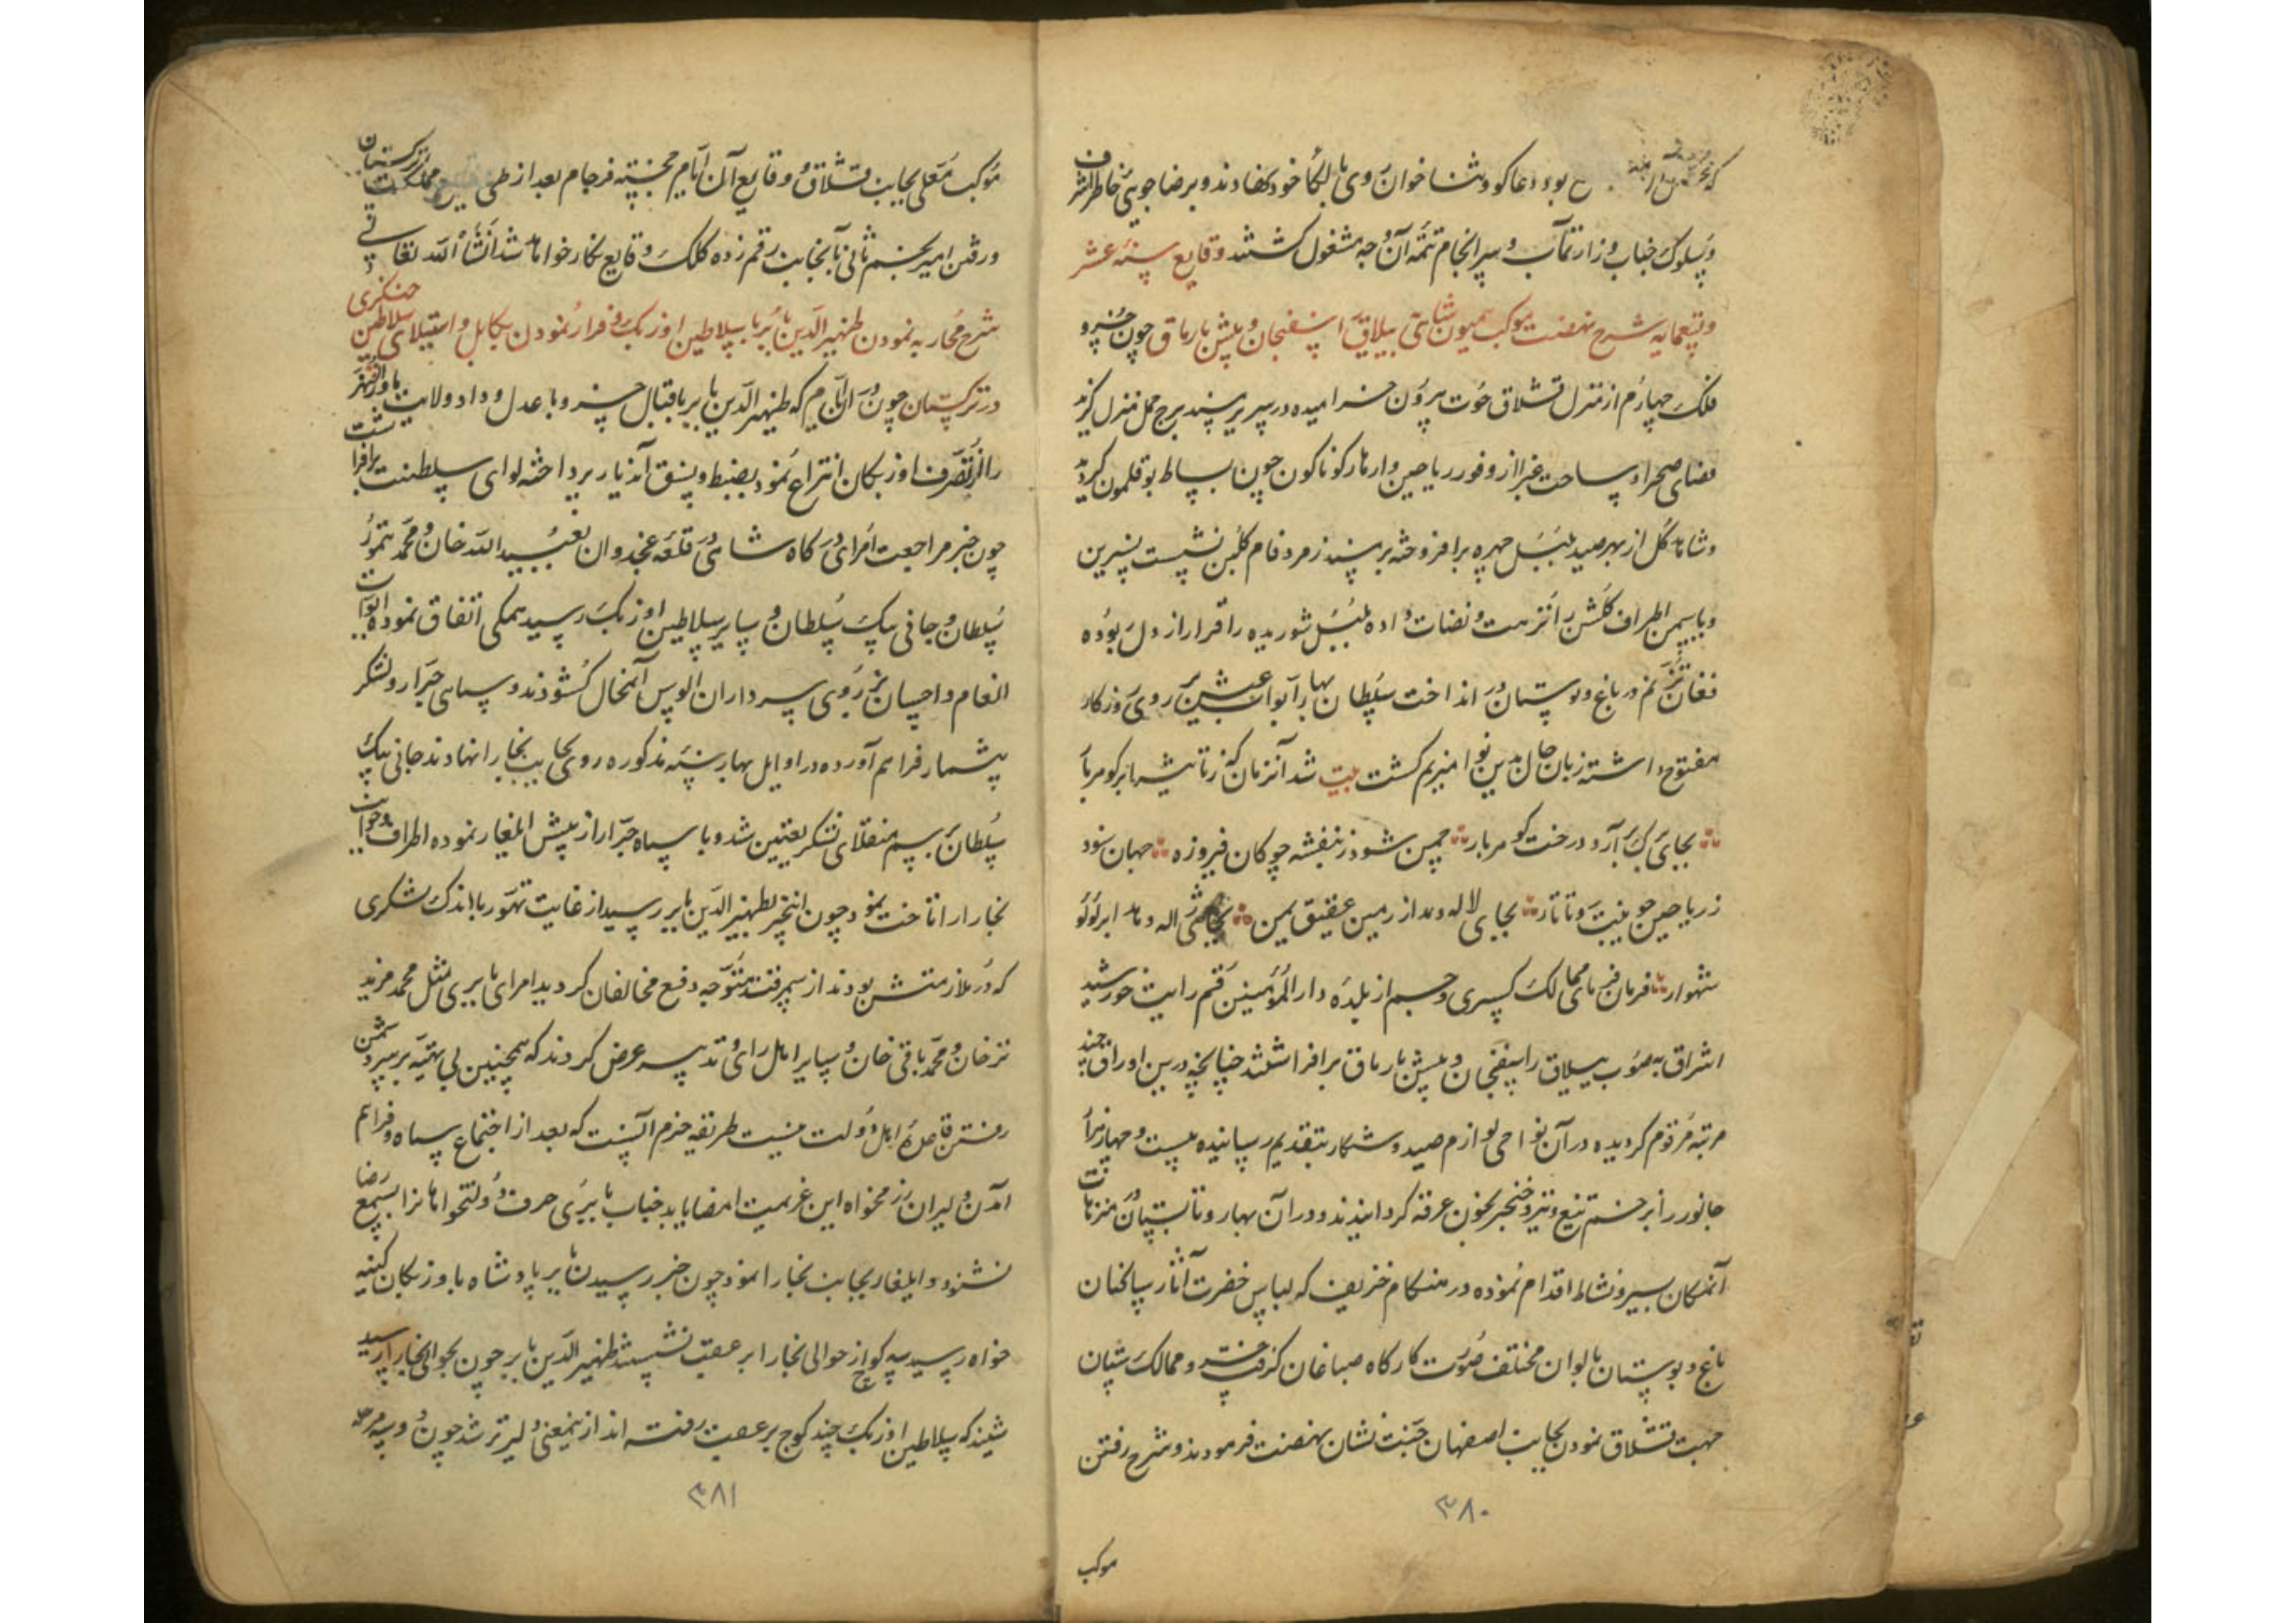 بود دعاکو و ثناخوان روی بالکاء خود نهادند و برضا جویئ خاطر اشرف
و سلوک جناب وزارتمآب و سرانجام تتمه آن وجه مشغول کشتند وقایع سنه عشر
و تسعمایه شرح نهضت موکب همیون شاهی ییلاق اسفنجان و پلشن بارماق چون خسرو
فلک چهارم از منزل قشلاق حوت بیرون خرامیده در سریر سپند برج حمل منزل کزید
فضای صحرا و ساحت غبرا از وفور ریاحین و ازهار کوناکون چون بساط بوقلمون کردید
و شاهد کل از بهر صید بلبل چهره برافروخته بر سپند زمرد فام کلبن نشست نسرین
و یاسیمن اطراف کلشن را نزهت و نضارت داده بلبل شوریده را قرار از دل بوده
فغان ترنم در باغ و بوستان در انداخت سلطان بهار ابواب عیش بر روی روزکار
مفتوح داشته زبان حال بدین نوا مترنم کشت بیت شد آنزمان که ز تاثیر ابر کوهر بار
بجای برک آرد درخت کوهر بار چمن شود ز بنفشه چو کان فیروزه جهان شود
ز ریاحین چو تبت و تاتار بجای لاله دمد از زمین عقیق یمن بجای ژاله دهد ابر لؤلؤ
شهوار فرمان فرمای ممالک کسری و جم از بلده دار المؤمنین قم رایت خورشید
اشراق به صوب ییلاق را سفنجان و پلشن بارماق برافراشتند چنانچه درین اوراق چند
مرتبه مرقوم کردیده در آن نواحی لوازم صید و شکار بتقدیم رسانیده بیست و چهار هزار
جانور را بزخم تیغ و تیر و خنجر بخون غرقه کردانیدند و در آن بهار و تابستان در منزهات
آنمکان بسیر و نشاط اقدام نموده در هنکام خزیف که لباس خضرت آثار ساکنان
باغ و بوستان بالوان مختلف صورت کارکاه صباغان کرفت خسرو ممالک ستان
جهت قشلاق نمودن بجانب اصفهان جنت نشان نهضت فرمودند و شرح رفتن
٣٨٠
موکب
موکب معلی بجانب قشلاق و وقایع آن ایام خجسته فرجام بعد از طی وقایع مملکت ترکستان
و رفتن امیر نجم ثانی بآنجانب رقم زده کلک وقایع نکار خواهد شد انشاء الله تعالی
شرح محاربه نمودن ظهیر الدین بابر با سلاطین اوزبک و فرار نمودن بکابل و استیلای سلاطین چنکزی
در ترکستان چون در آن ایام که ظهیر الدین بابر باقبال خسرو با عدل و داد ولایت ماوراء النهر
را از تصرف اوزبکان انتزاع نمود بضبط و نسق آندیار پرداخته لوای سلطنت برافراشت
چون خبر مراجعت امرای درکاه شاهی در قلعه غجدوان بعبید الله خان و محمد تیمور
سلطان و جانی بیک سلطان و سایر سلاطین اوزبک رسید همکی اتفاق نموده ابواب
انعام و احسان بر روی سرداران الوس آنمحال کشودند و سپاهی جرار و لشکر
بیشمار فراهم آورده در اوایل بهار سنه مذکوره روی بجانب بخارا نهادند جانی بیک
سلطان برسم منقلای لشکر تعیین شد و با سپاه جرار از پیش ایلغار نموده اطراف و جوانب
بخارا را تاخت نمود چون اینخبر بظهیر الدین بابر رسید از غایت تهور با اندک لشکری
که در ملازمتش بودند از سمرقند متوجه دفع مخالفان کردید امرای بابری مثل محمد مزید
ترخان و محمد باقی خان و سایر اهل رای و تدبیر عرض کردند که همچنین بی تهیه بر سر دشمن
رفتن قاعده اهل دولت نیست طریقه حزم آنست که بعد از اجتماع سپاه و فراهم
آمدن دلیران رزمخواه این عزیمت امضا یابد جناب بابری حرف دولتخواهانرا بسمع رضا
نشنود و ایلغار بجانب بخارا نمود چون خبر رسیدن بابر پادشاه باوزبکان کینه
خواه رسید سه کوچ از حوالی بخارا بر عقب نشستند ظهیر الدین بابر چون بحوالی بخارا رسید
شنید که سلاطین اوزبک چند کوج بر عقب رفته اند ازینمعنی دلیرتر شد چون دو سه مرحله
٣٨١